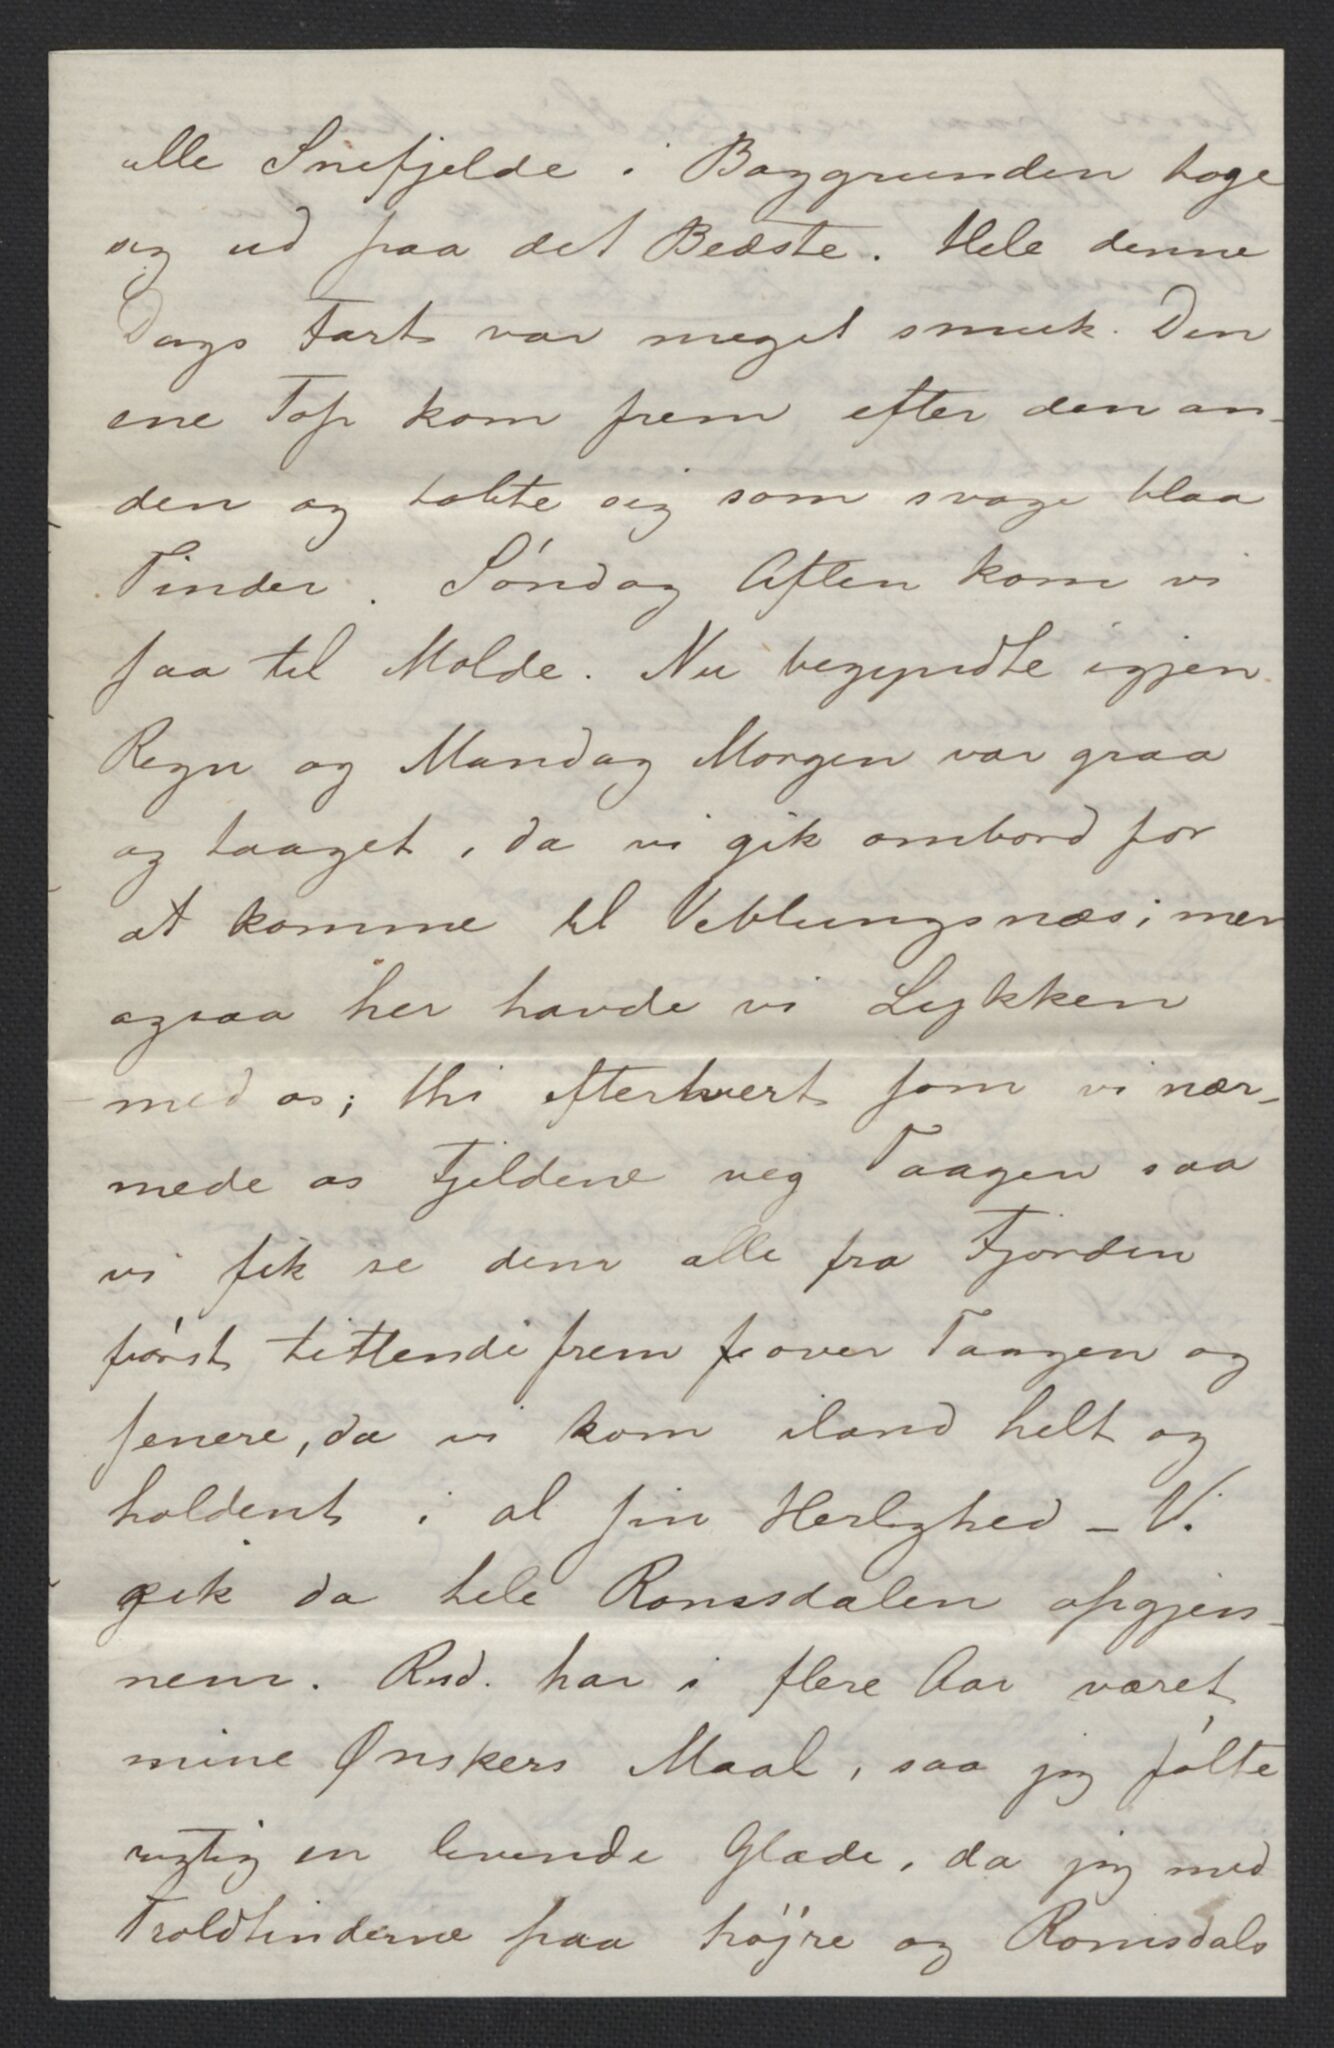 alle Snefjelde i Baggrunden toge
sig ud paa det Bedste. Hele denne
Dags Fart var meget smuk. Den
ene Top kom frem efter den an-
den og tabte sig som svage blaa
Tinder. Søndag Aften kom vi
saa til Molde. Nu begyndte igjen
Regn og Mandag Morgen var graa
og taaget, da vi gik ombord for
at komme til Veblungsnæs; men
ogsaa her havde vi Lykken
med os; thi efterhvert som vi nær-
mede os Fjeldene veg Taagen saa
vi fik se dem alle fra Fjorden
først tittende frem over Taagen og
senere, da vi kom iland helt og
holdent i al sin Herlighed – Vi
gik da hele Romsdalen opgjen-
nem. Rmd. har i flere Aar været
mine Ønskers Maal, saa jeg følte
rigtig en levende Glæde, da jeg med
Troldtinderne paa højre og Romsdals